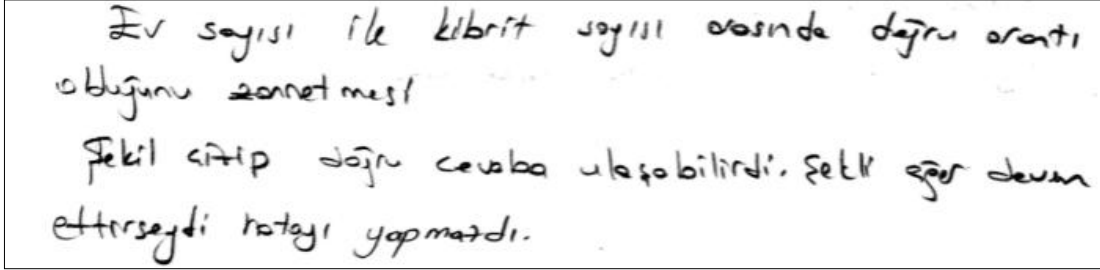 Ev sayısı ile kibrit sayısı arasında doğru orantı
olduğunu zannetmesi
Şekil çizip doğru cevaba ulaşabilirdi. Şekli eğer devam
ettirseydi hatayı yapmazdı.